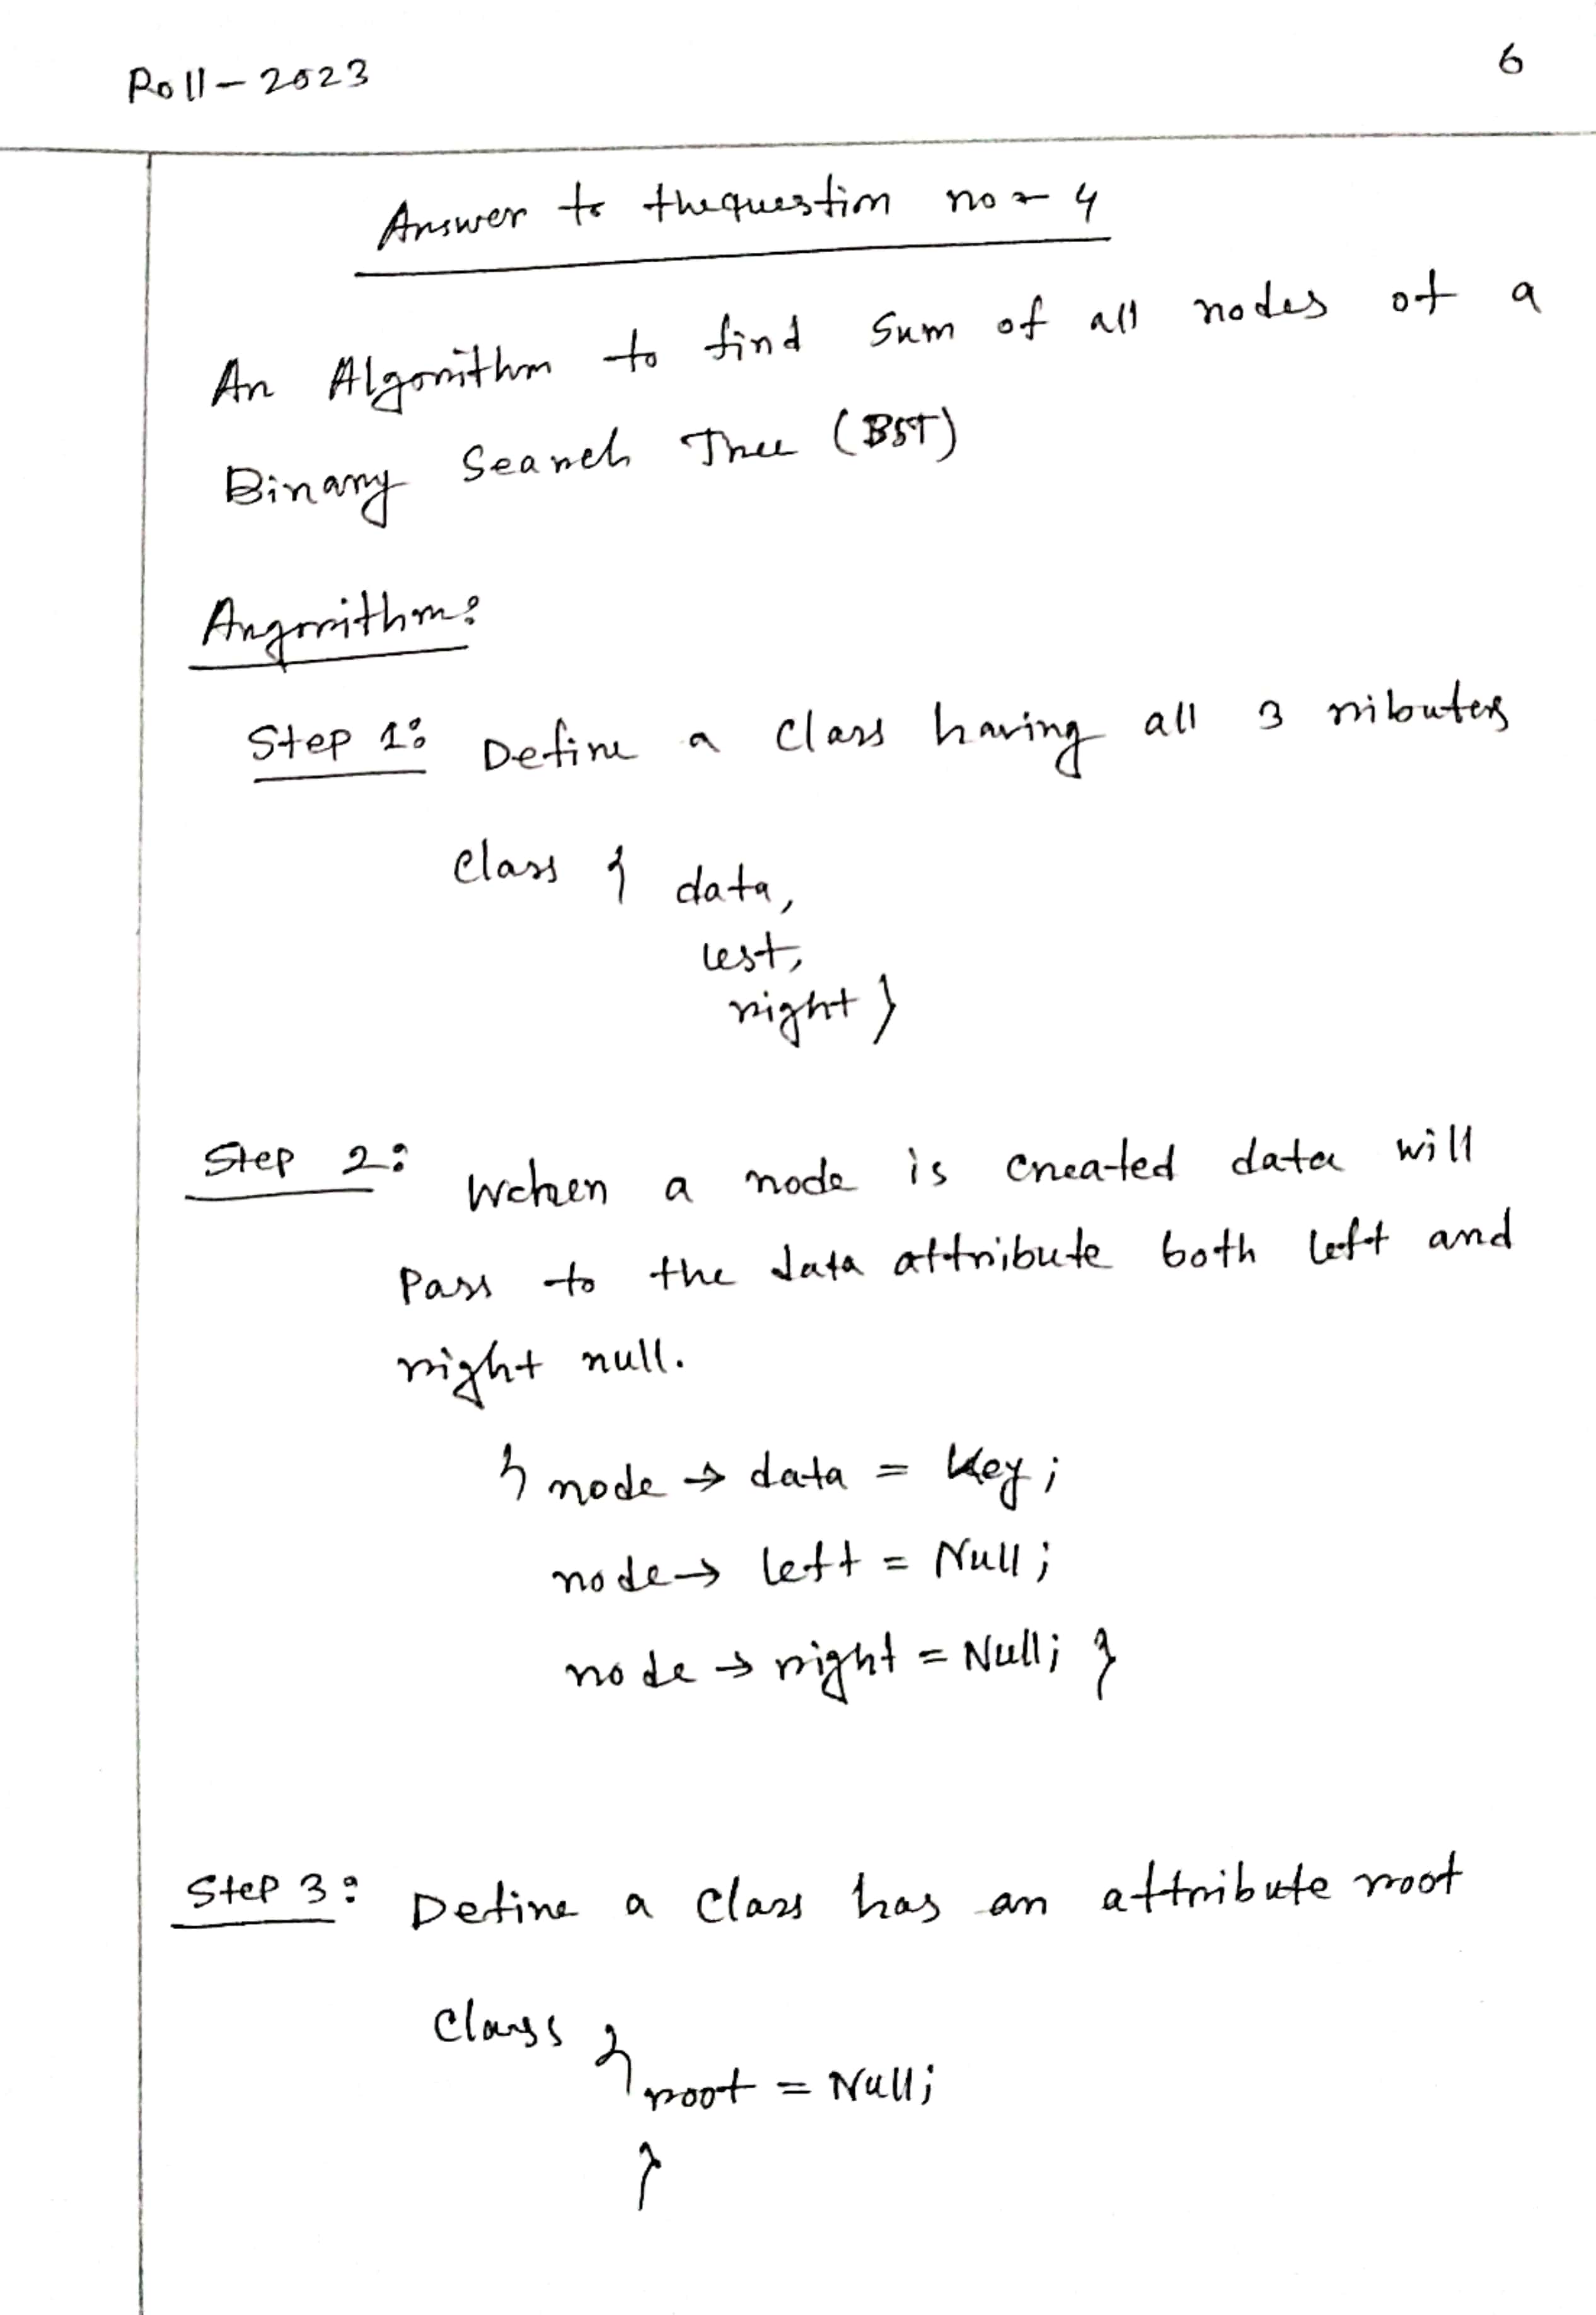 Roll-2023
6
Answer to the question no - 4
An Algorithm to find sum of all nodes of a
Binary Search Tree (BST)
Angorithm:
Step 1: Define a class having all 3 ributers
class { data,
lest,
right }
Step 2: Wchen a node is created data will
pass to the data attribute both left and
right null.
{ node → data = key;
node → left = Null;
node → right = Null; }
Step 3: Define a class has an attribute root
Class {
root = Null;
}